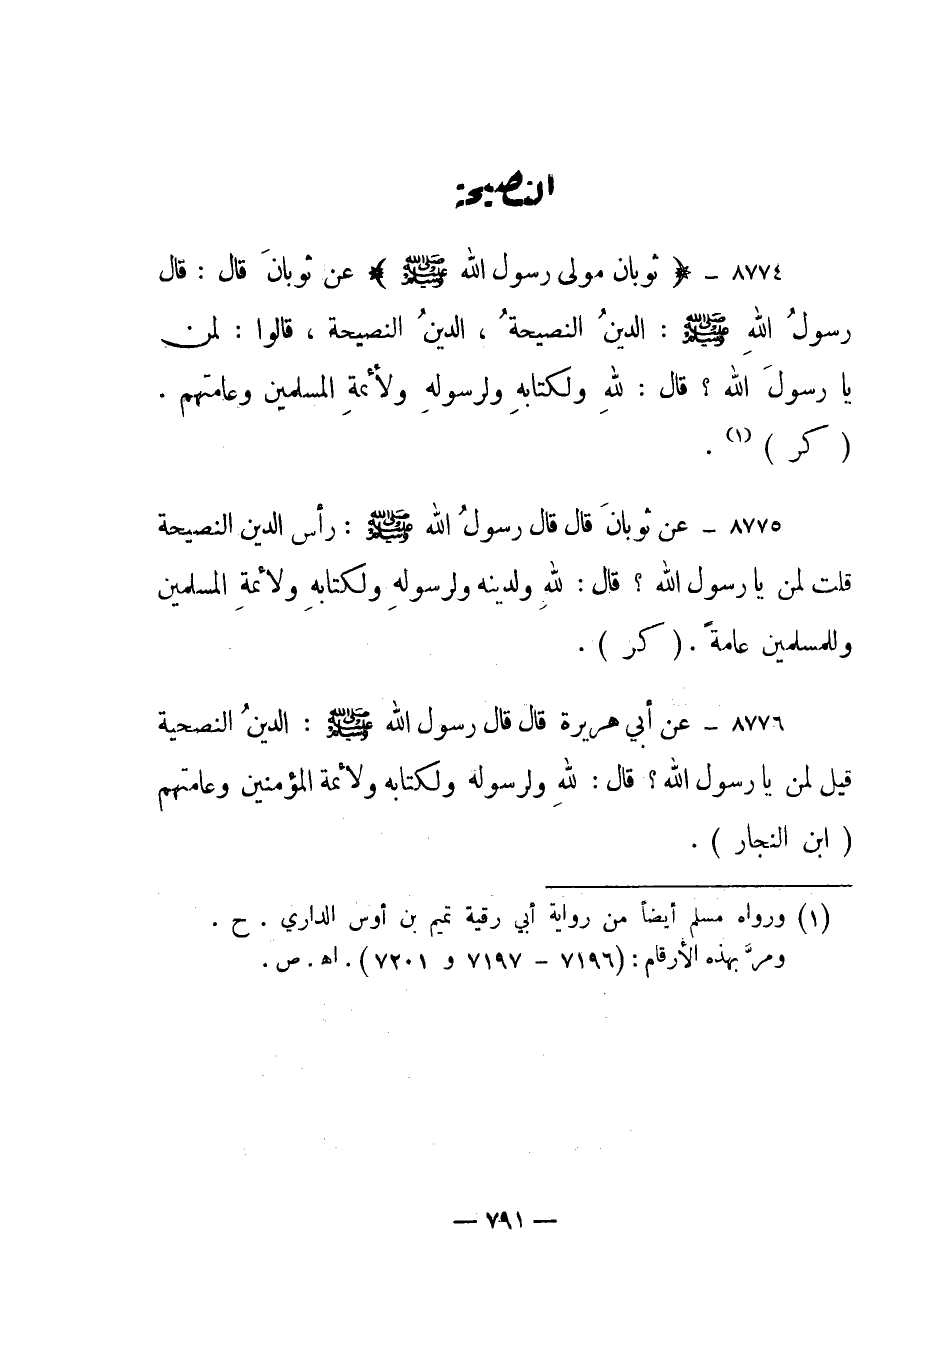 النصيحة
٨٧٧٤ - ﴿ ثوبان مولى رسول الله ﷺ ﴾ عن ثوبانَ قال : قال
رسولُ اللهِ ﷺ : الدينُ النصيحةُ ، الدينُ النصيحة ، قالوا : لمن
يا رسولَ الله ؟ قال : للهِ ولكتابهِ ولرسولهِ ولأئمةِ المسلمين وعامتهم .
( كر ) (١) .
٨٧٧٥ - عن ثوبانَ قال قال رسولُ الله ﷺ : رأس الدين النصيحة
قلت لمن يا رسول الله ؟ قال : للهِ ولدينه ولرسولهِ ولكتابهِ ولأئمةِ المسلمين
وللمسلمين عامةً . ( كر ) .
٨٧٧٦ - عن أبي هريرة قال قال رسول الله ﷺ : الدينُ النصحية
قيل لمن يا رسول الله ؟ قال : للهِ ولرسوله ولكتابه ولأئمة المؤمنين وعامتهم
( ابن النجار ) .
(١) ورواه مسلم أيضاً من رواية أبي رقية تميم بن أوس الداري . ح .
ومرَّ بهذه الأرقام : (٧١٩٦ - ٧١٩٧ و ٧٢٠١) . اه . ص .
— ٧٩١ —